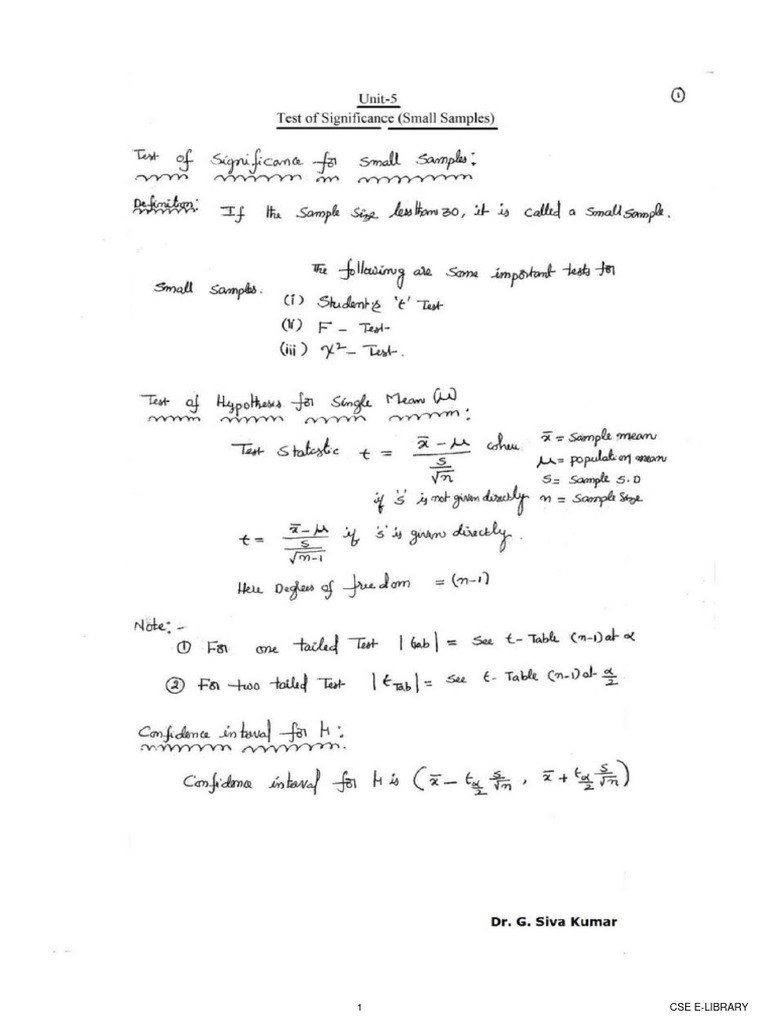 Unit-5
①
Test of Significance (Small Samples)
Test of Significance for Small Samples:
Definition: If the Sample Size less than 30, it is called a small sample.
The following are some important tests for
Small Samples.
(i) Student's 't' Test
(ii) F - Test
(iii) χ² - Test.
Test of Hypothesis for Single Mean (μ):
Test Statistic t = (x̄ - μ) / (s/√n) where x̄ = Sample mean
μ = population mean
s = Sample S.D
if 's' is not given directly n = Sample Size
t = (x̄ - μ) / (s/√(n-1)) if 's' is given directly.
Here Degrees of freedom = (n-1)
Note: -
① For one tailed Test |tab| = See t - Table (n-1) at α
② For two tailed Test |t_Tab| = See t - Table (n-1) at α/2
Confidence interval for μ:
Confidence interval for μ is (x̄ - t_α/2 s/√n , x̄ + t_α/2 s/√n)
Dr. G. Siva Kumar
1
CSE E-LIBRARY